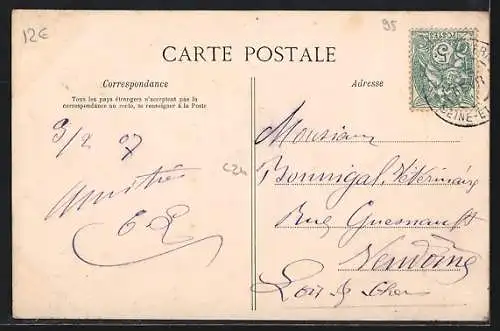 12€
95
CARTE POSTALE
Correspondance
Tous les pays étrangers n'acceptent pas la
correspondance au recto, se renseigner à la Poste
Adresse
5
SEINE-E
3/2 07
Amitiés
Monsieur
Bonnigal, Vétérinaire
Rue Guesnault
Vendôme
Loir & Cher